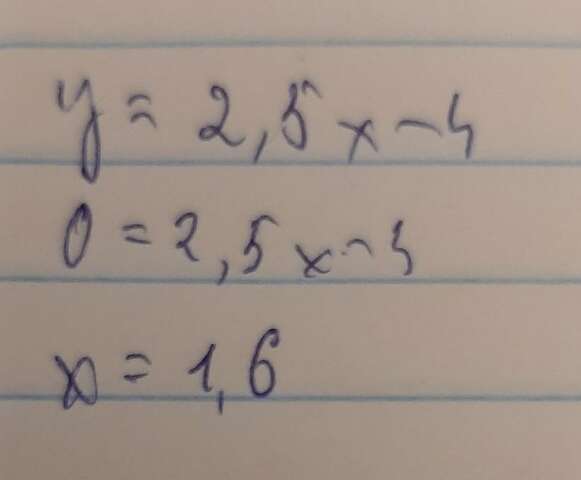 y = 2,5x - 4
0 = 2,5x - 4
x = 1,6